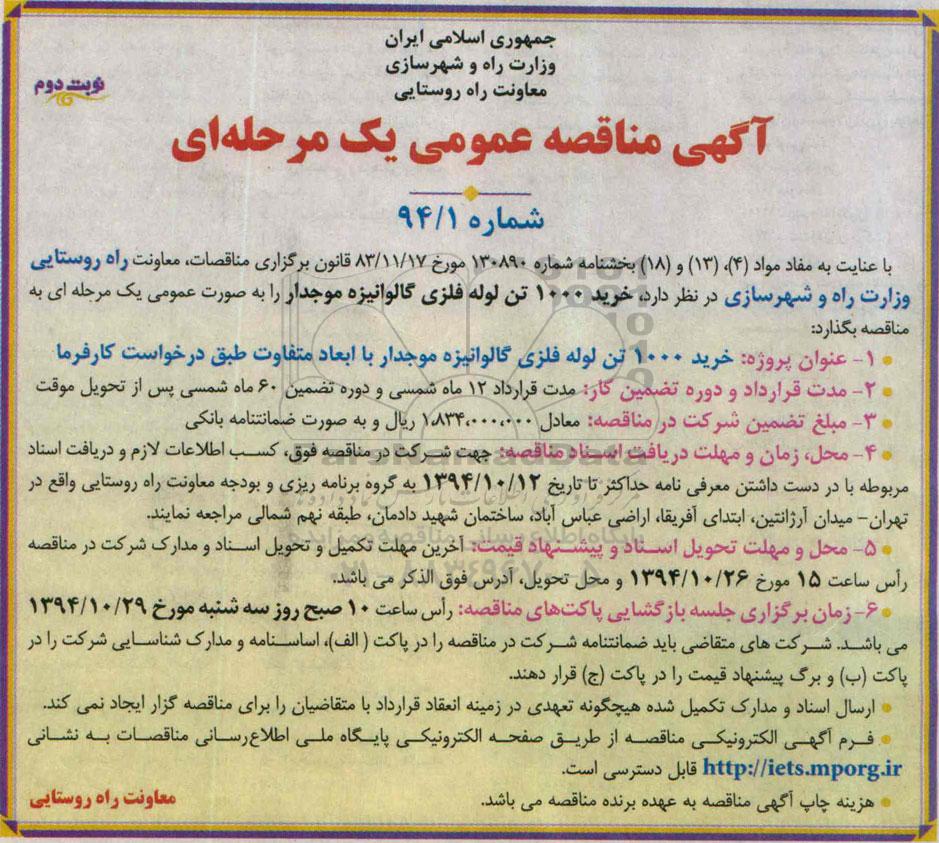 جمهوری اسلامی ایران
وزارت راه و شهرسازی
معاونت راه روستایی
نوبت دوم
آگهی مناقصه عمومی یک مرحله‌ای
شماره ۹۴/۱
با عنایت به مفاد مواد (۴)، (۱۳) و (۱۸) بخشنامه شماره ۱۳۰۸۹۰ مورخ ۸۳/۱۱/۱۷ قانون برگزاری مناقصات، معاونت راه روستایی
وزارت راه و شهرسازی در نظر دارد، خرید ۱۰۰۰ تن لوله فلزی گالوانیزه موجدار را به صورت عمومی یک مرحله ای به
مناقصه بگذارد:
۱- عنوان پروژه: خرید ۱۰۰۰ تن لوله فلزی گالوانیزه موجدار با ابعاد متفاوت طبق درخواست کارفرما
۲- مدت قرارداد و دوره تضمین کار: مدت قرارداد ۱۲ ماه شمسی و دوره تضمین ۶۰ ماه شمسی پس از تحویل موقت
۳- مبلغ تضمین شرکت در مناقصه: معادل ۱،۸۳۴،۰۰۰،۰۰۰ ریال و به صورت ضمانتنامه بانکی
۴- محل، زمان و مهلت دریافت اسناد مناقصه: جهت شرکت در مناقصه فوق، کسب اطلاعات لازم و دریافت اسناد
مربوطه با در دست داشتن معرفی نامه حداکثر تا تاریخ ۱۳۹۴/۱۰/۱۲ به گروه برنامه ریزی و بودجه معاونت راه روستایی واقع در
تهران- میدان آرژانتین، ابتدای آفریقا، اراضی عباس آباد، ساختمان شهید دادمان، طبقه نهم شمالی مراجعه نمایند.
۵- محل و مهلت تحویل اسناد و پیشنهاد قیمت: آخرین مهلت تکمیل و تحویل اسناد و مدارک شرکت در مناقصه
رأس ساعت ۱۵ مورخ ۱۳۹۴/۱۰/۲۶ و محل تحویل، آدرس فوق الذکر می باشد.
۶- زمان برگزاری جلسه بازگشایی پاکت‌های مناقصه: رأس ساعت ۱۰ صبح روز سه شنبه مورخ ۱۳۹۴/۱۰/۲۹
می باشد. شرکت های متقاضی باید ضمانتنامه شرکت در مناقصه را در پاکت (الف)، اساسنامه و مدارک شناسایی شرکت را در
پاکت (ب) و برگ پیشنهاد قیمت را در پاکت (ج) قرار دهند.
ارسال اسناد و مدارک تکمیل شده هیچگونه تعهدی در زمینه انعقاد قرارداد با متقاضیان را برای مناقصه گزار ایجاد نمی کند.
فرم آگهی الکترونیکی مناقصه از طریق صفحه الکترونیکی پایگاه ملی اطلاع‌رسانی مناقصات به نشانی
http://iets.mporg.ir قابل دسترسی است.
هزینه چاپ آگهی مناقصه به عهده برنده مناقصه می باشد.
معاونت راه روستایی